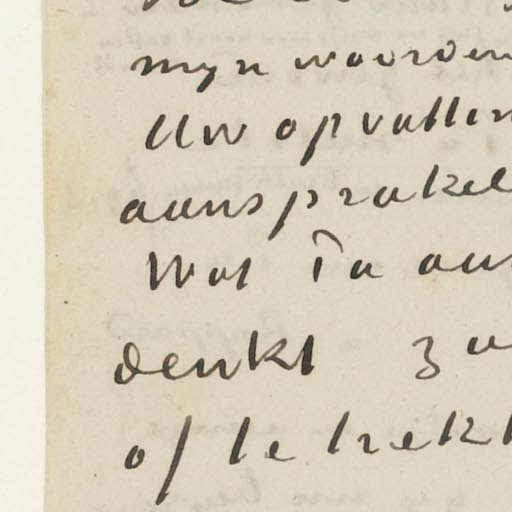 mijn woorden
Uw opvattin
aansprakel
Wat Ta aan
denkt zu
of te trekk